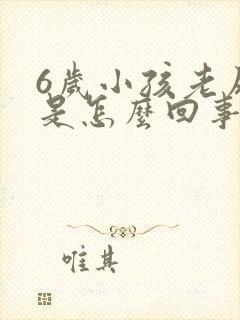 6歲小孩老
是怎麼回事
唯其